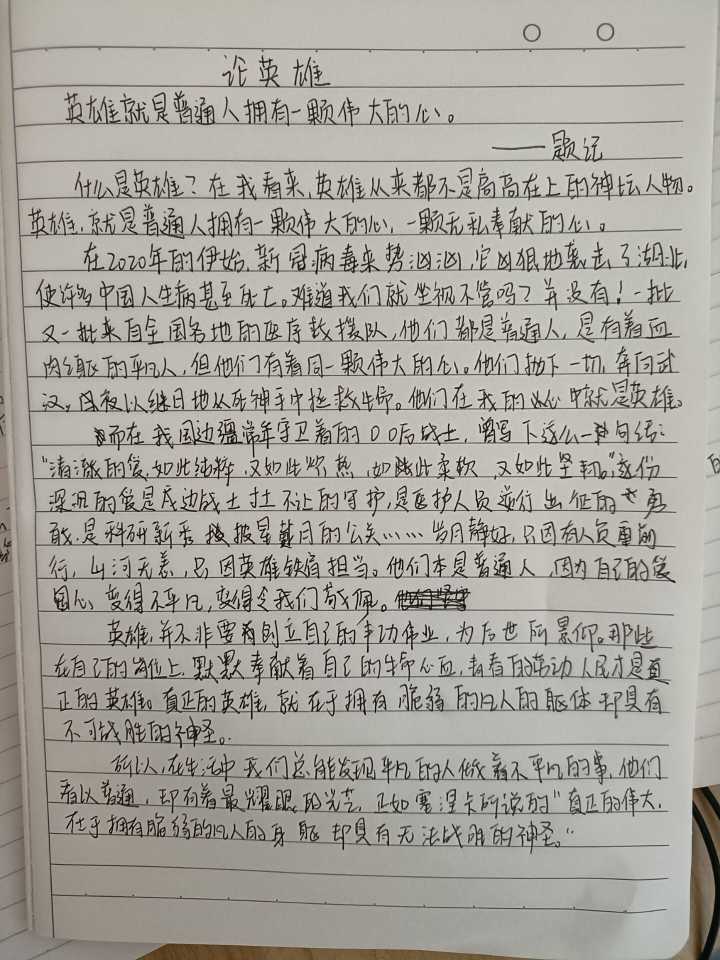 论英雄
英雄就是普通人拥有一颗伟大的心。
——题记
什么是英雄？在我看来,英雄从来都不是高高在上的神坛人物。
英雄,就是普通人拥有一颗伟大的心,一颗无私奉献的心。
在2020年的伊始,新冠病毒来势汹汹,它凶狠地袭击了湖北,
使许多中国人生病甚至死亡。难道我们就坐视不管吗？并没有！一批
又一批来自全国各地的医疗救援队,他们都是普通人,是有着血
肉之躯的平凡人,但他们有着同一颗伟大的心。他们抛下一切,奔向武
汉。日夜以继日地从死神手中拯救生命。他们在我的心中就是英雄。
而在我国边疆常年守卫着的00后战士,曾写下这么一句话：
“清澈的爱,如此纯粹,又如此炽热,如此柔软,又如此坚韧。”这份
深沉的爱是戍边战士寸土不让的守护,是医护人员逆行出征的勇
敢,是科研新秀披星戴月的公关……岁月静好,只因有人负重前
行,山河无恙,只因英雄铁肩担当。他们本是普通人,因为自己的爱
国心变得不平凡,变得令我们敬佩。
英雄,并不非要有创立自己的丰功伟业,为后世所景仰。那些
在自己的岗位上,默默奉献着自己的生命心血,青春的劳动人民才是真
正的英雄。真正的英雄,就在于拥有脆弱的凡人的躯体却具有
不可战胜的神圣。
所以,在生活中我们总能发现平凡的人做着不平凡的事,他们
看以普通,却有着最耀眼的光芒,正如塞涅卡所说的“真正的伟大,
在于拥有脆弱的凡人的身躯却具有无法战胜的神圣。”